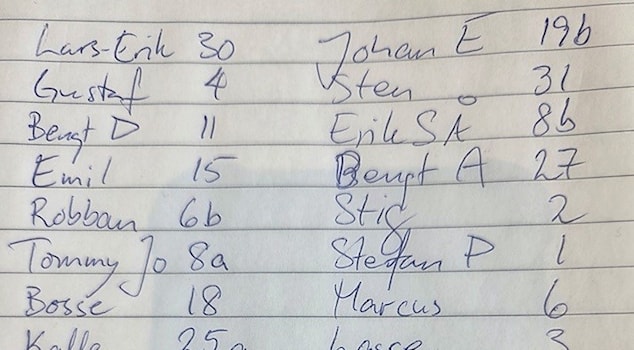 Lars-Erik 30 Johan E 19b
Gustaf 4 Sten 31
Bengt D 11 Erik SÅ 8b
Emil 15 Bengt A 27
Robban 6b Stig 2
Tommy Jo 8a Stefan P 1
Bosse 18 Marcus 6
Kalle 25a Lasse 3